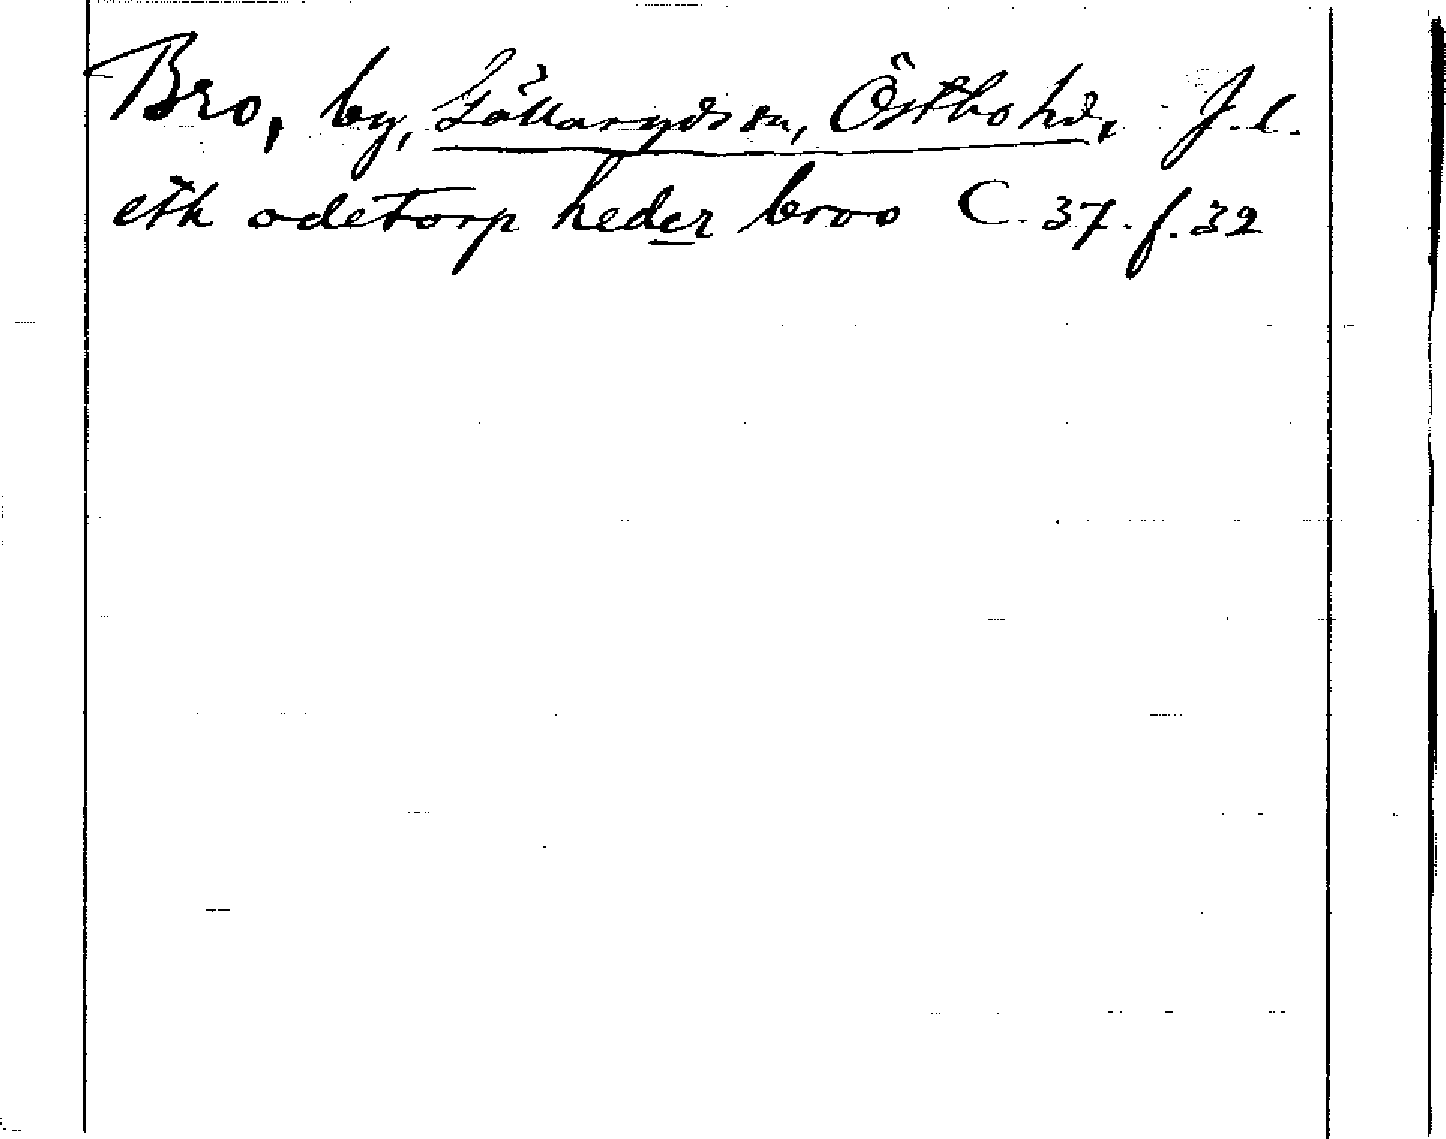 Bro, by, Gällaryds sn, Östbo hd, J. l.
eth ödetorp heder broo C. 37. f. 32